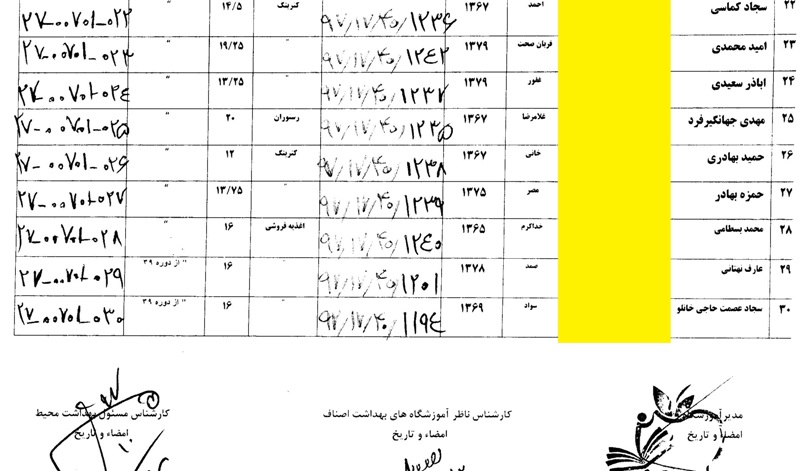 ۲۲ سجاد کماسی احمد ۱۳۶۷ ۹۷/۱۷/۴۰/۱۲۳۶ کترینک ۱۴/۵ " ۲۷-۰۰۷۰۱-۰۲۲
۲۳ امید محمدی قربان صحت ۱۳۷۹ ۹۷/۱۷/۴۰/۱۲۴۲ " ۱۹/۲۵ " ۲۷-۰۰۷۰۱-۰۲۳
۲۴ اباذر سعیدی غفور ۱۳۷۹ ۹۷/۱۷/۴۰/۱۲۳۷ " ۱۳/۲۵ " ۲۷-۰۰۷۰۱-۰۲۴
۲۵ مهدی جهانگیرفرد غلامرضا ۱۳۶۷ ۹۷/۱۷/۴۰/۱۲۳۵ رستوران ۲۰ " ۲۷-۰۰۷۰۱-۰۲۵
۲۶ حمید بهادری خانی ۱۳۶۷ ۹۷/۱۷/۴۰/۱۲۳۸ کترینک ۱۲ " ۲۷-۰۰۷۰۱-۰۲۶
۲۷ حمزه بهادر ۱۳۷۵ ۹۷/۱۷/۴۰/۱۲۳۹ " ۱۳/۷۵ " ۲۷-۰۰۷۰۱-۰۲۷
۲۸ محمد بسطامی خداکرم ۱۳۶۵ ۹۷/۱۷/۴۰/۱۲۴۰ اغذیه فروشی ۱۶ " ۲۷-۰۰۷۰۱-۰۲۸
۲۹ عارف نهتانی صمد ۱۳۷۸ ۹۷/۱۷/۴۰/۱۲۰۱ " ۱۶ " از دوره ۳۹ ۲۷-۰۰۷۰۱-۰۲۹
۳۰ سجاد عصمت حاجی خانلو سواد ۱۳۶۹ ۹۷/۱۷/۴۰/۱۱۹۴ " ۱۶ " از دوره ۳۹ ۲۷-۰۰۷۰۱-۰۳۰
مدیر آموزشگاه کارشناس ناظر آموزشگاه های بهداشت اصناف کارشناس مسئول بهداشت محیط
امضاء و تاریخ امضاء و تاریخ امضاء و تاریخ